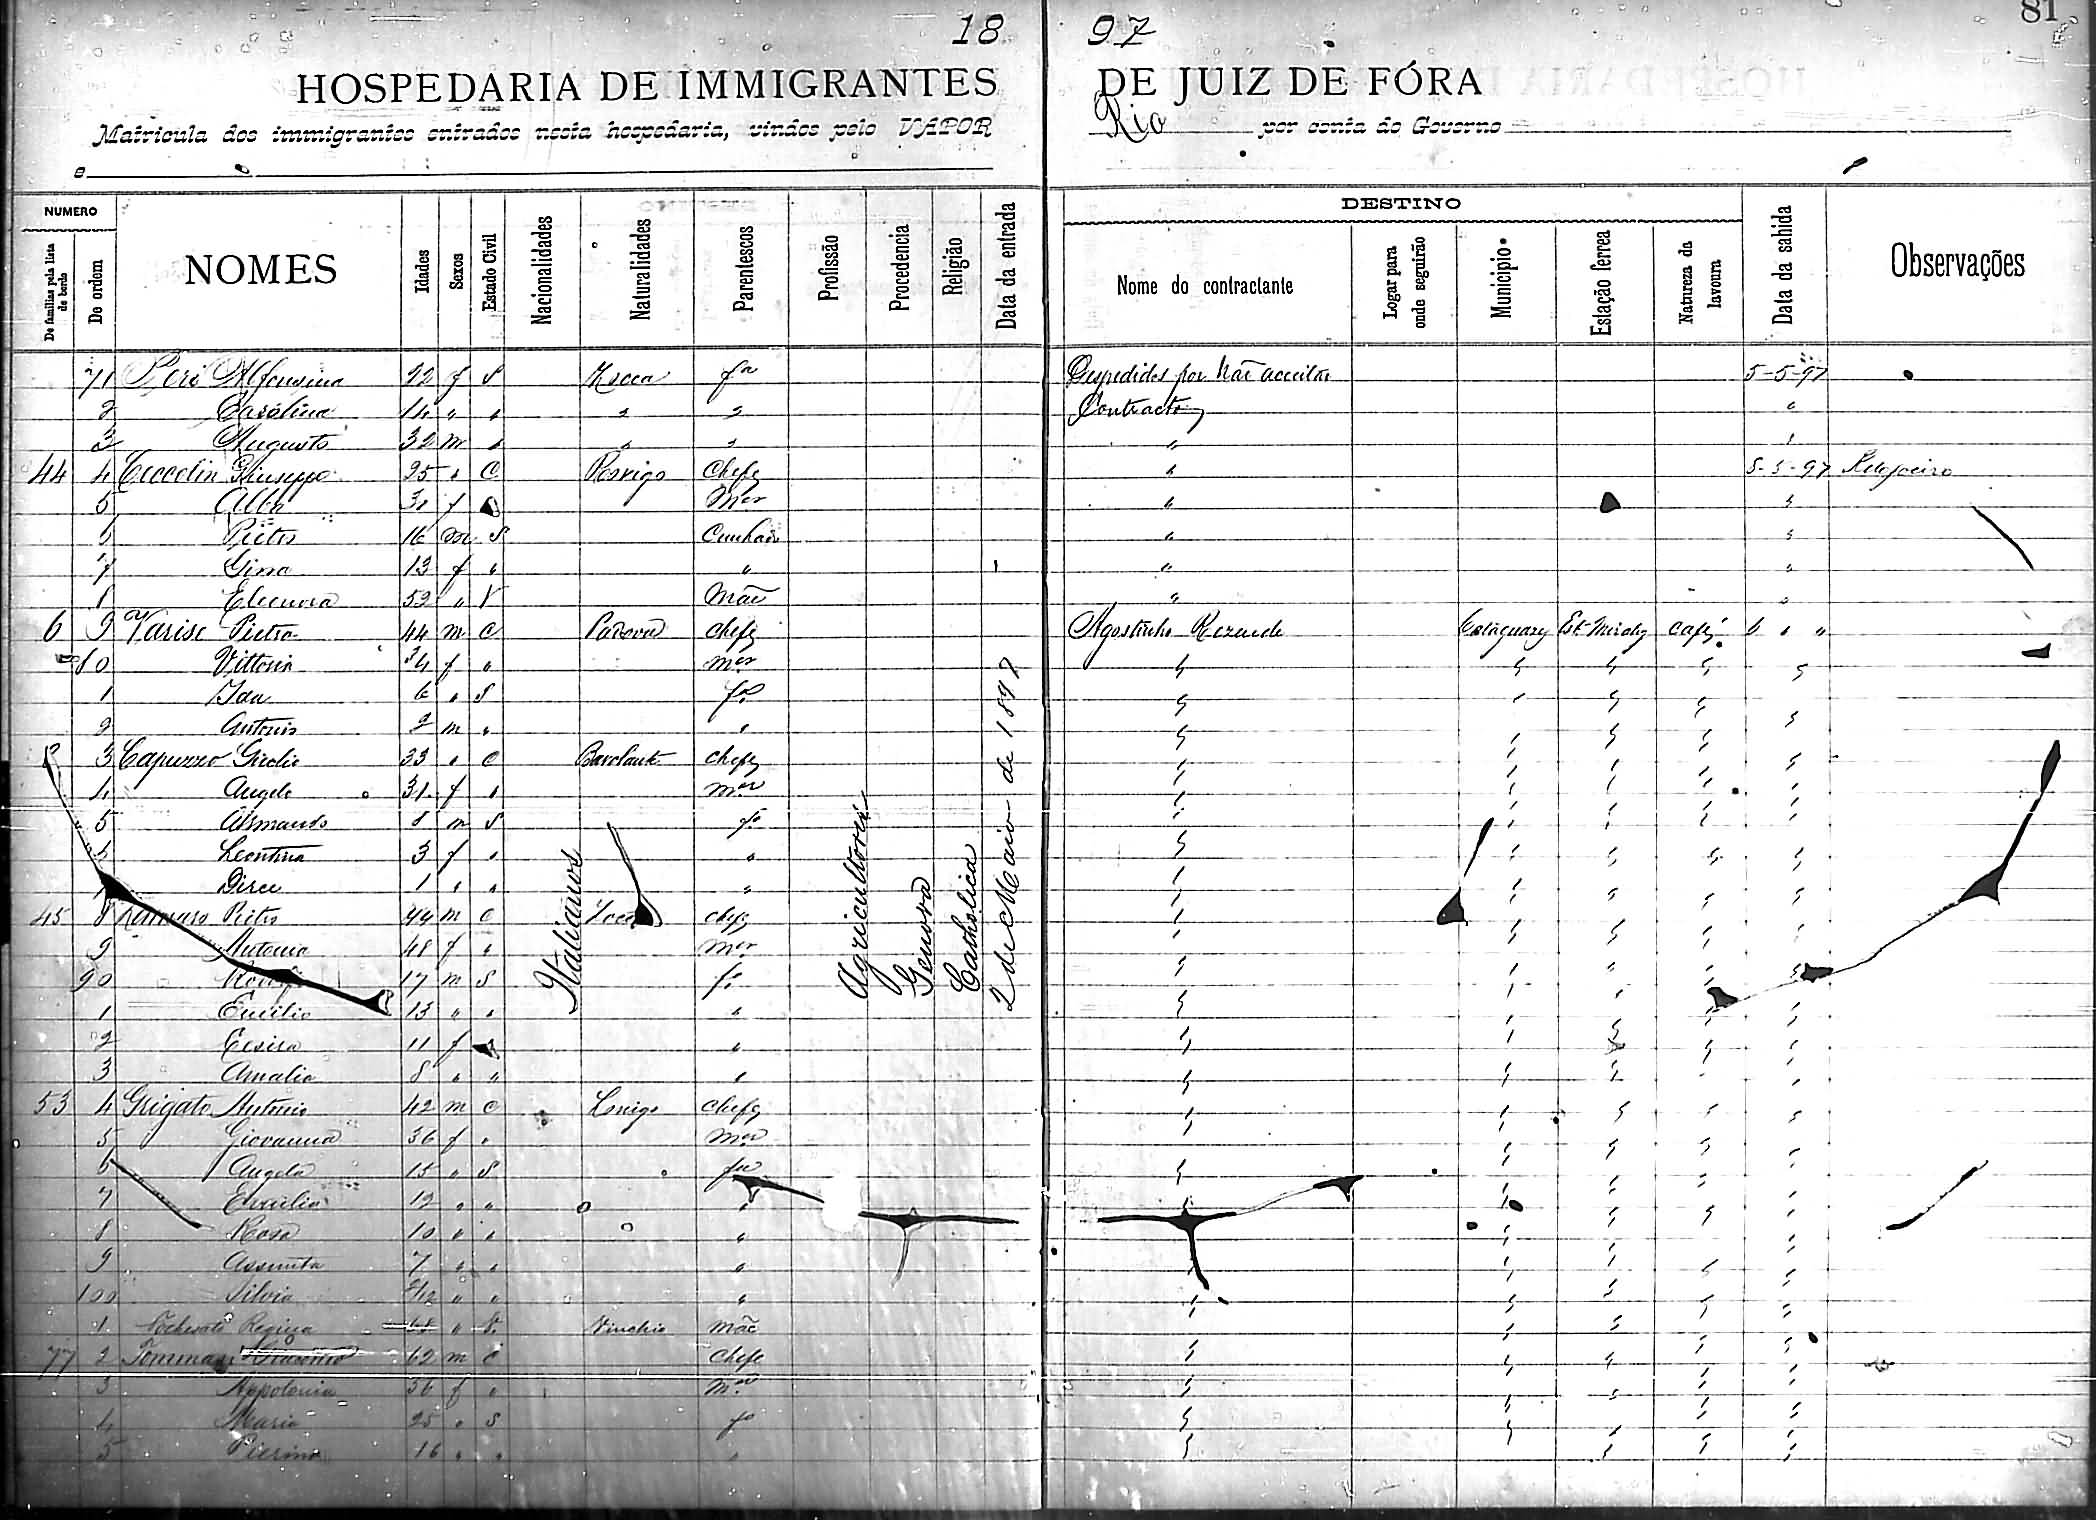 18 97
81
HOSPEDARIA DE IMMIGRANTES DE JUIZ DE FÓRA
Matricula dos immigrantes entrados nesta hospedaria, vindos pelo VAPOR Rio por conta do Governo
NUMERO
De familias pela lista de bordo
De ordem
NOMES
Idades
Sexos
Estado Civil
Nacionalidades
Naturalidades
Parentescos
Profissão
Procedencia
Religião
Data da entrada
DESTINO
Nome do contractante
Logar para onde seguirão
Municipio
Estação ferrea
Natureza da lavoura
Data da sahida
Observações
71 Alfonsina 22 f S fa Despedidos por não acceitar 5-5-97
2 Carolina 14 " " " " Contracto "
3 Augusto 32 m " " " "
44 4 Giuseppe 25 " C Rovigo Chefe " 5-5-97
5 Alba f Mer "
6 Pietro 16 m S Cunhado "
7 Gina 13 f " " "
8 Eleonora 52 " V Mãe "
6 9 Varise Pietro 44 m C Padova Chefe Agostinho Rezende Cataguazes café 6 " "
80 Vittoria 34 f " mer
1 Ida 6 " S fa
2 Antonio 2 m " "
3 Capuzzo Giulio 33 " C chefe
4 Angela 31 f " mer
5 Armando 8 m S fo
6 Leontina 3 f " "
7 Dirce 1 " " "
45 8 Pietro 44 m C chefe
9 Antonia 48 f " mer
90 17 m S fo
1 Emilio 13 " " "
2 Cesira 11 f "
3 Amalia 8 " " "
53 4 Grigato Antonio 42 m C Lonigo Chefe
5 Giovanna 36 f " mer
6 Angela 15 " S fa
7 Emilia 12 " " "
8 Rosa 10 " " "
9 Assunta 7 " " "
100 Silvia " " "
1 Regina 68 " V mãe
77 2 Tommasi Giacomo 62 m C Chefe
3 Appolonia 56 f " mer
4 Maria 25 " S fa
5 Pierina 16 " " "
Italianos
Agricultores
Genova
Catholica
2 de Maio de 1897